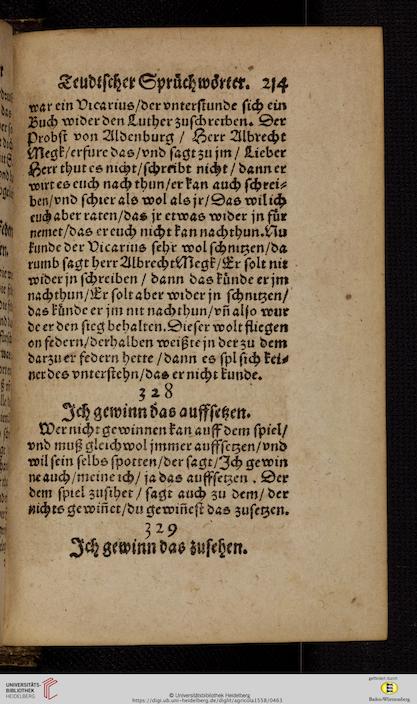 Teudtscher Sprüchwörter. 214
war ein Vicarius/der vnterstunde sich ein
Buch wider den Luther zuschreiben. Der
Probst von Aldenburg / Herr Albrecht
Megk/erfure das/vnd sagt zu jm / Lieber
Herr thut es nicht/schreibt nicht / dann er
wirt es euch nach thun/er kan auch schrei-
ben/vnd schier als wol als jr/Das wil ich
euch aber raten/das jr etwas wider jn für
nemet/das er euch nicht kan nachthun. Nu
kunde der Vicarius sehr wol schnitzen/da
rumb sagt herr Albrecht Megk/Er solt nit
wider jn schreiben / dann das künde er jm
nachthun/Er solt aber wider jn schnitzen/
das künde er jm nit nachthun/vñ also wur
de er den sieg behalten. Dieser wolt fliegen
on federn/derhalben weißte jn der zu dem
darzu er federn hette / dann es spl sich kei-
ner des vnterstehn/das er nicht kunde.
328
Ich gewinn das auffsetzen.
Wer nicht gewinnen kan auff dem spiel/
vnd muß gleichwol jmmer auffsetzen/vnd
wil sein selbs spotten/der sagt/Ich gewin
ne auch/meine ich/ ja das auffsetzen . Der
dem spiel zusihet / sagt auch zu dem/ der
nichts gewiñet/du gewiñest das zusetzen.
329
Ich gewinn das zusehen.
UNIVERSITÄTS-
BIBLIOTHEK
HEIDELBERG
© Universitätsbibliothek Heidelberg
https://digi.ub.uni-heidelberg.de/diglit/agricola1558/0461
gefördert durch
Baden-Württemberg